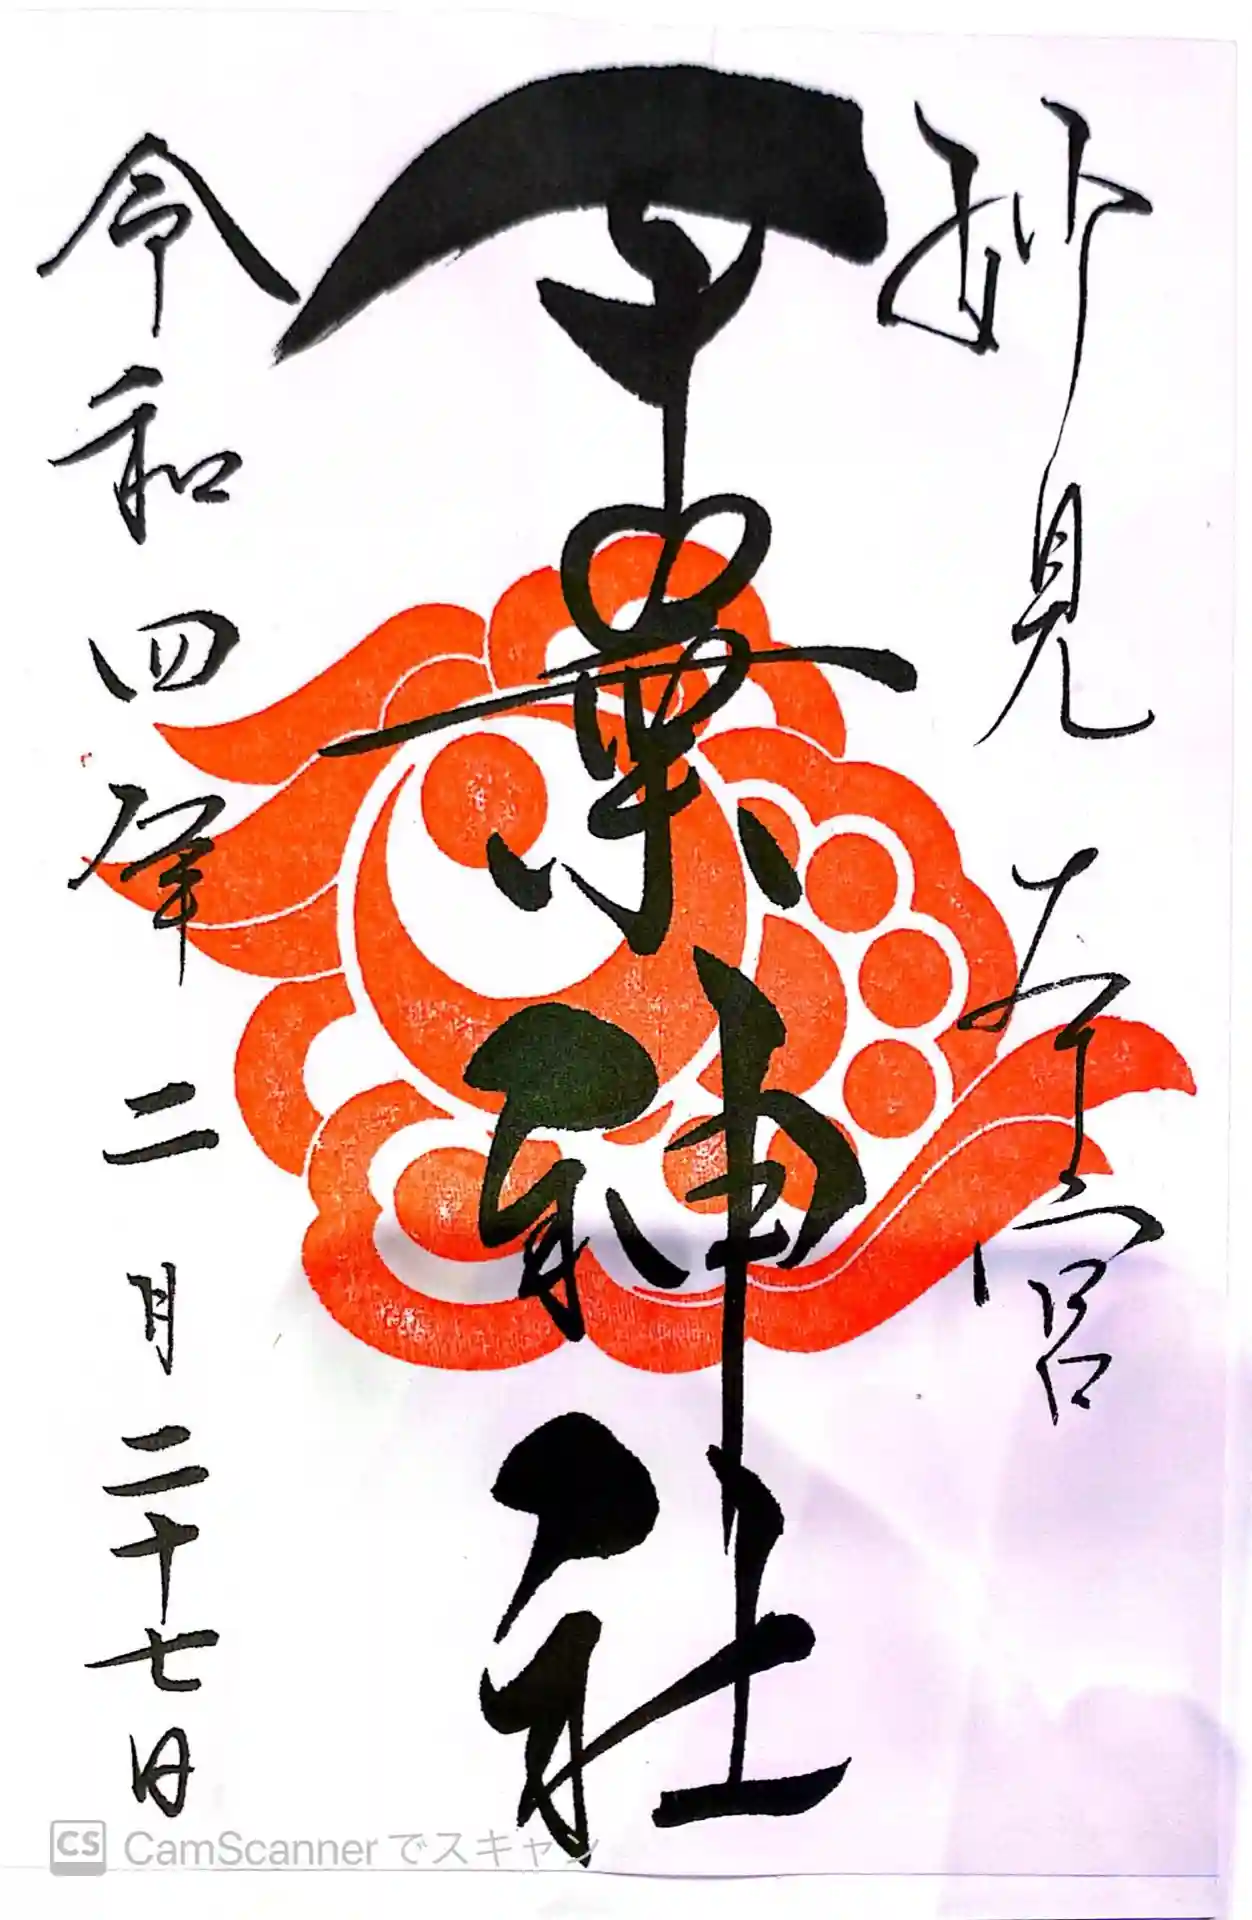 妙見本宮
千葉神社
令和四年二月二十七日
CS CamScannerでスキャン